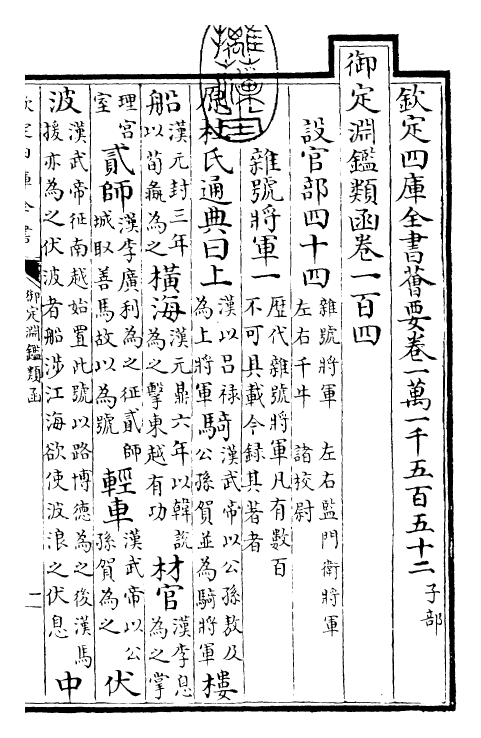 欽定四庫全書薈要卷一萬一千五百五十二 子部
御定淵鑑類函卷一百四
設官部四十四 雜號將軍 左右監門衛將軍 左右千牛 諸校尉
雜號將軍一 歴代雜號將軍凡有數百不可具載今録其著者
原杜氏通典曰上 漢以吕禄為上將軍 騎 漢武帝以公孫敖及公孫賀並為騎將軍 樓
船 漢元封三年以荀彘為之 橫海 漢元鼎六年以韓説為之擊東越有功 材官 漢李息為之掌
理宫室 貳師 漢李廣利為之征貳師城取善馬故以為號 輕車 漢武帝以公孫賀為之 伏
波 漢武帝征南越始置此號以路博德為之後漢馬援亦為之伏波者船涉江海欲使波浪之伏息 中
御定淵鑑類函